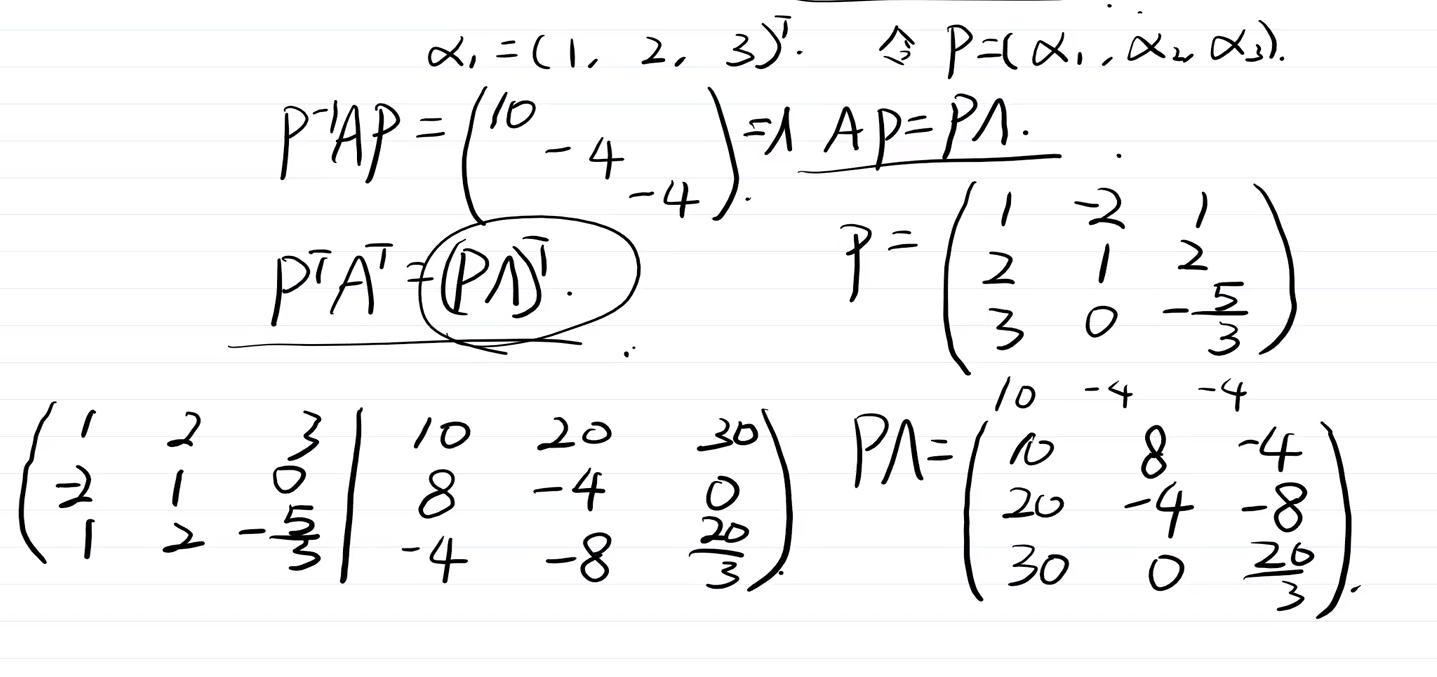 α₁ = (1, 2, 3)ᵀ. 令 P = (α₁, α₂, α₃).
P⁻¹AP = (10 -4 -4) = Λ AP = PΛ.
PᵀAᵀ = (PΛ)ᵀ.
P = ( 1 -2 1
2 1 2
3 0 -5/3 )
( 1 2 3 | 10 20 30
-2 1 0 | 8 -4 0
1 2 -5/3 | -4 -8 20/3 ).
10 -4 -4
PΛ = ( 10 8 -4
20 -4 -8
30 0 20/3 ).